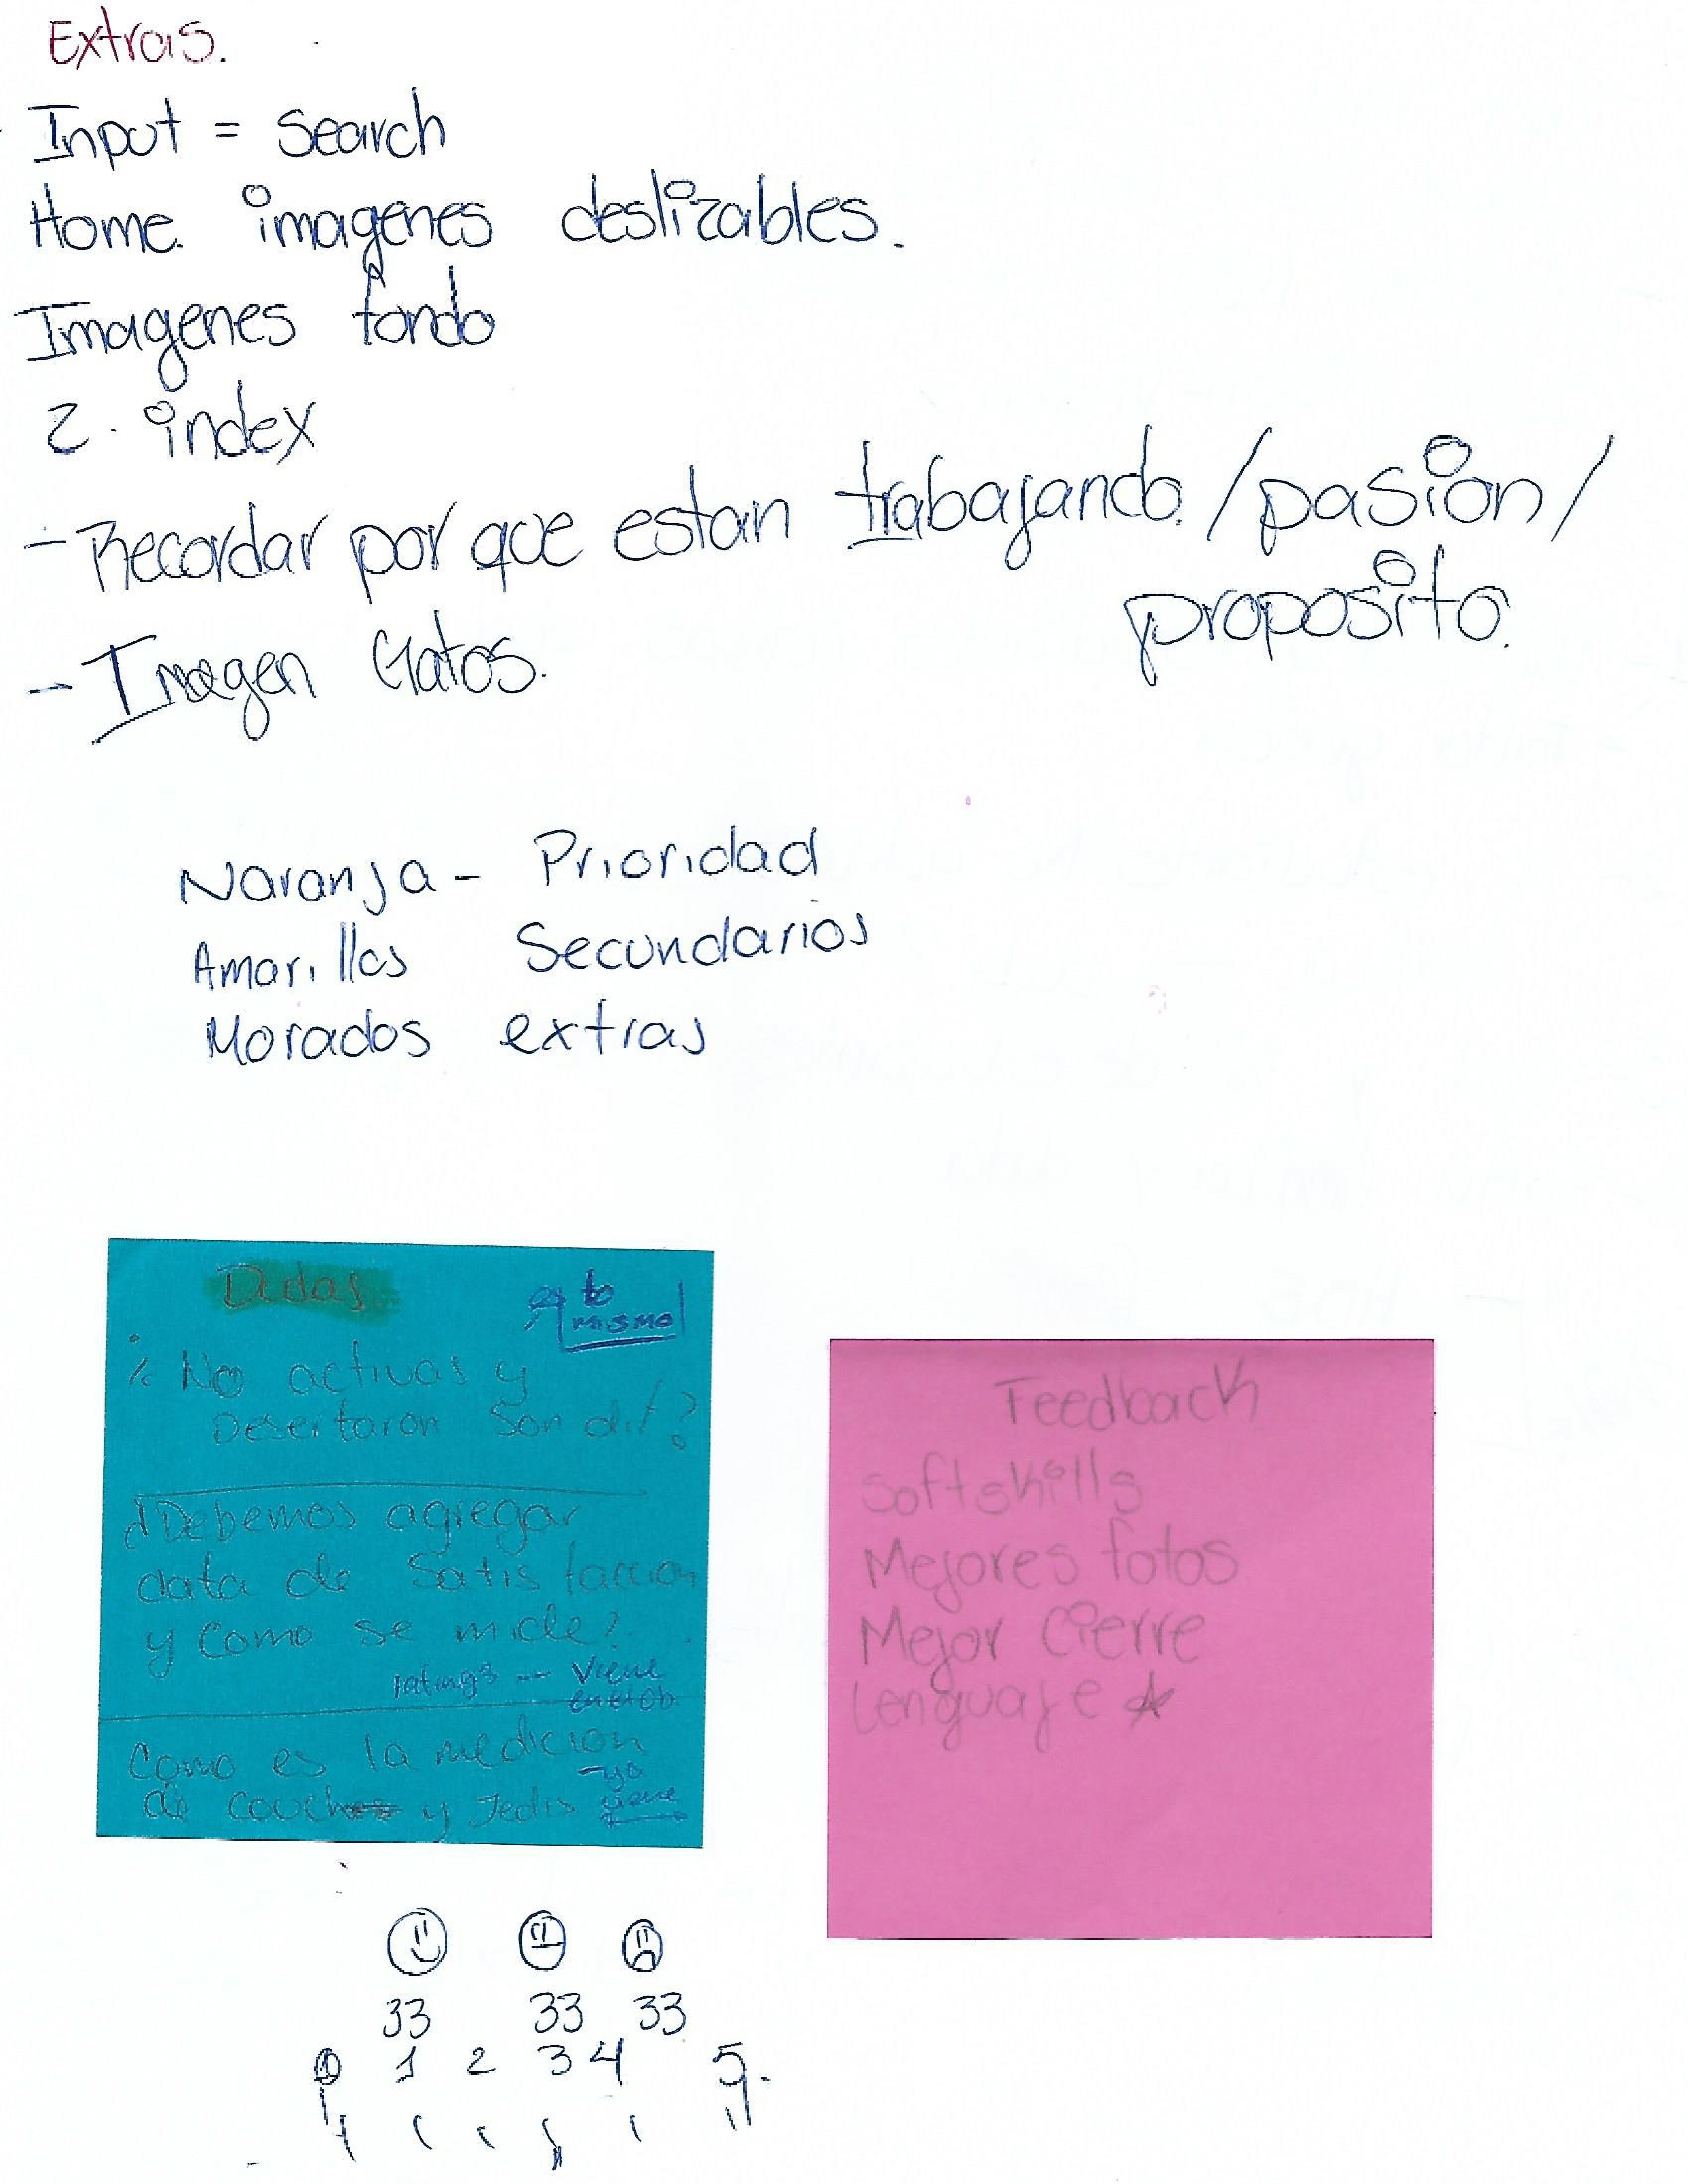 Extras.
Input = search
Home. imagenes deslizables.
Imagenes fondo
z. index
- Recordar por que estan trabajando. /pasion/
proposito.
- Imagen Gatos.
Naranja - Prioridad
Amarillos Secundarios
Morados extras
Dudas
es lo
mismo
¿ No activas y
Desertaron son dif?
¿Debemos agregar
data de Satisfaccion
y como se mide?
ratings - Viene
Como es la medicion
de couch y Jedis
-ya
viene
Feedback
Softskills
Mejores fotos
Mejor Cierre
Lenguaje
33 33 33
0 1 2 3 4 5.